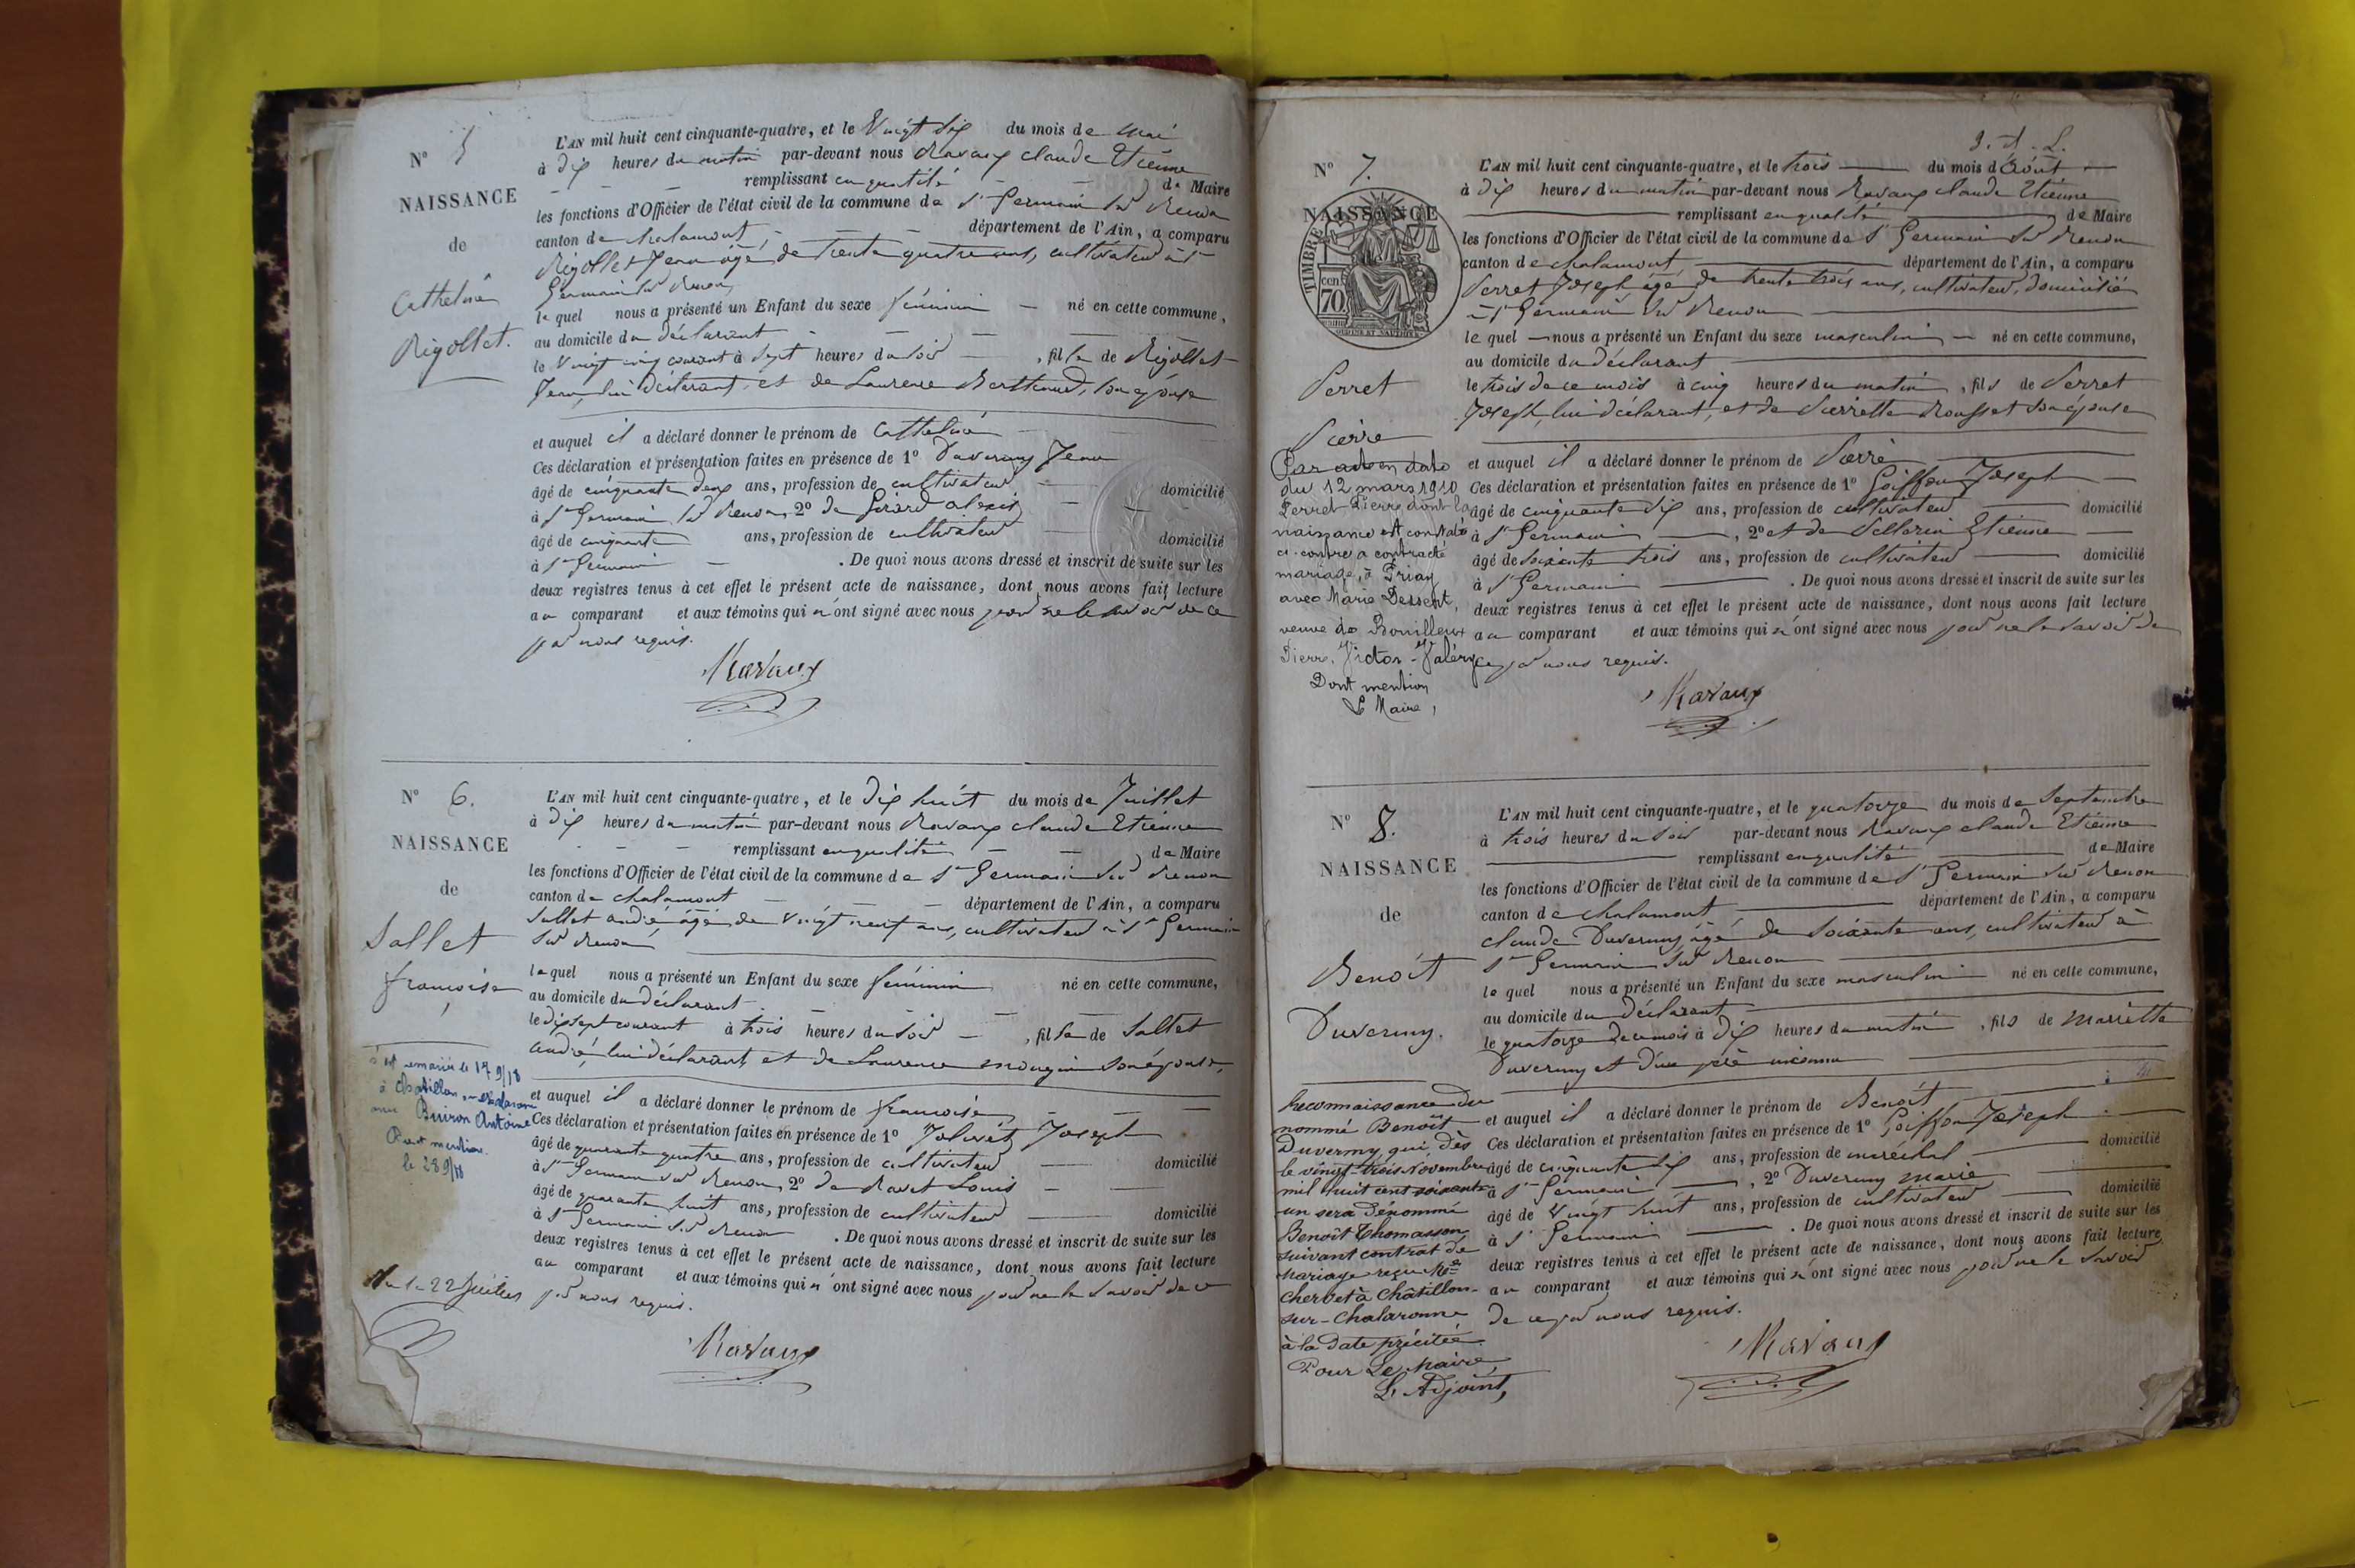 N° 5
NAISSANCE
de
Catherine
Rigollet.
L'AN mil huit cent cinquante-quatre, et le Vingt six du mois de Mai
à dix heures du matin par-devant nous Ravaux claude Etienne
remplissant en qualité de Maire
les fonctions d'Officier de l'état civil de la commune de St Germain sur Renon
canton de chalamont, département de l'Ain, a comparu
Rigollet Jean âgé de trente quatre ans, cultivateur à St
Germain sur Renon,
lequel nous a présenté un Enfant du sexe féminin né en cette commune,
au domicile du déclarant
le Vingt cinq courant à Sept heures du soir, fille de Rigollet
Jean, lui déclarant, et de Laurence son épouse
et auquel il a déclaré donner le prénom de Catherine
Ces déclaration et présentation faites en présence de 1° Duverney Jean
âgé de cinquante deux ans, profession de cultivateur domicilié
à St Germain sur Renon, 2° de Girard alexis
âgé de cinquante ans, profession de cultivateur domicilié
à St Germain . De quoi nous avons dressé et inscrit de suite sur les
deux registres tenus à cet effet le présent acte de naissance, dont nous avons fait lecture
au comparant et aux témoins qui n'ont signé avec nous pour ne le savoir de ce
par nous requis.
Ravaux
N° 6.
NAISSANCE
de
Sallet
françoise
s'est remariée le 17 9/18
à Chatillon s- chalaronne
avec Buiron Antoine
Dont mention
le 28 9/18
Vu le 22 Juillet
L'AN mil huit cent cinquante-quatre, et le dix huit du mois de Juillet
à dix heures du matin par-devant nous Ravaux claude Etienne
remplissant en qualité de Maire
les fonctions d'Officier de l'état civil de la commune de St Germain sur Renon
canton de chalamont département de l'Ain, a comparu
Sallet andré, âgé de Vingt neuf ans, cultivateur à St Germain
sur Renon
lequel nous a présenté un Enfant du sexe féminin né en cette commune,
au domicile du déclarant
le dix sept courant à trois heures du soir, fille de Sallet
andré, lui déclarant, et de Laurence mongin son épouse,
et auquel il a déclaré donner le prénom de françoise
Ces déclaration et présentation faites en présence de 1° Jolivet Joseph
âgé de quarante quatre ans, profession de cultivateur domicilié
à St Germain sur Renon, 2° de Ravet Louis
âgé de quarante huit ans, profession de cultivateur domicilié
à St Germain sur Renon . De quoi nous avons dressé et inscrit de suite sur les
deux registres tenus à cet effet le présent acte de naissance, dont nous avons fait lecture
au comparant et aux témoins qui n'ont signé avec nous pour ne le savoir de ce
par nous requis.
Ravaux
N° 7.
NAISSANCE
TIMBRE
70 cen
Perret
Pierre
Par acte en date
du 12 mars 1910
Perret Pierre dont la
naissance est constatée
ci-contre a contracté
mariage, à Priay
avec Marie Dessert,
veuve de Bouilleux
Pierre, Victor-Valéry
Dont mention
Le Maire,
L'AN mil huit cent cinquante-quatre, et le trois du mois d'Août
à dix heures du matin par-devant nous Ravaux claude Etienne
remplissant en qualité de Maire
les fonctions d'Officier de l'état civil de la commune de St Germain sur Renon
canton de chalamont, département de l'Ain, a comparu
Perret Joseph âgé de trente trois ans, cultivateur, domicilié
à St Germain sur Renon
lequel nous a présenté un Enfant du sexe masculin né en cette commune,
au domicile du déclarant
le trois de ce mois à cinq heures du matin, fils de Perret
Joseph, lui déclarant, et de Pierrette Rousset son épouse
et auquel il a déclaré donner le prénom de Pierre
Ces déclaration et présentation faites en présence de 1° Goiffon Joseph
âgé de cinquante dix ans, profession de cultivateur domicilié
à St Germain, 2° et de Pellerin Etienne
âgé de soixante trois ans, profession de cultivateur domicilié
à St Germain . De quoi nous avons dressé et inscrit de suite sur les
deux registres tenus à cet effet le présent acte de naissance, dont nous avons fait lecture
au comparant et aux témoins qui n'ont signé avec nous pour ne le savoir de
ce par nous requis.
Ravaux
N° 8.
NAISSANCE
de
Benoît
Duverney.
Reconnaissance du
nommé Benoît
Duverney qui, dès
le vingt-trois Novembre
mil huit cent soixante
un sera dénommé
Benoît Thomasson
suivant contrat de
Mariage reçu Me
Cherbet à Châtillon-
sur-Chalaronne
à la date précitée
Pour Le Maire,
L'Adjoint,
L'AN mil huit cent cinquante-quatre, et le quatorze du mois de Septembre
à trois heures du soir par-devant nous Ravaux claude Etienne
remplissant en qualité de Maire
les fonctions d'Officier de l'état civil de la commune de St Germain sur Renon
canton de chalamont département de l'Ain, a comparu
claude Duverney, âgé de soixante ans, cultivateur à
St Germain sur Renon
lequel nous a présenté un Enfant du sexe masculin né en cette commune,
au domicile du déclarant
le quatorze de ce mois à dix heures du matin, fils de Mariette
Duverney et d'un père inconnu
et auquel il a déclaré donner le prénom de Benoît
Ces déclaration et présentation faites en présence de 1° Goiffon Joseph
âgé de cinquante dix ans, profession de maréchal domicilié
à St Germain, 2° Duverney marie
âgé de Vingt huit ans, profession de cultivateur domicilié
à St Germain . De quoi nous avons dressé et inscrit de suite sur les
deux registres tenus à cet effet le présent acte de naissance, dont nous avons fait lecture
au comparant et aux témoins qui n'ont signé avec nous pour ne le savoir
de ce par nous requis.
Ravaux